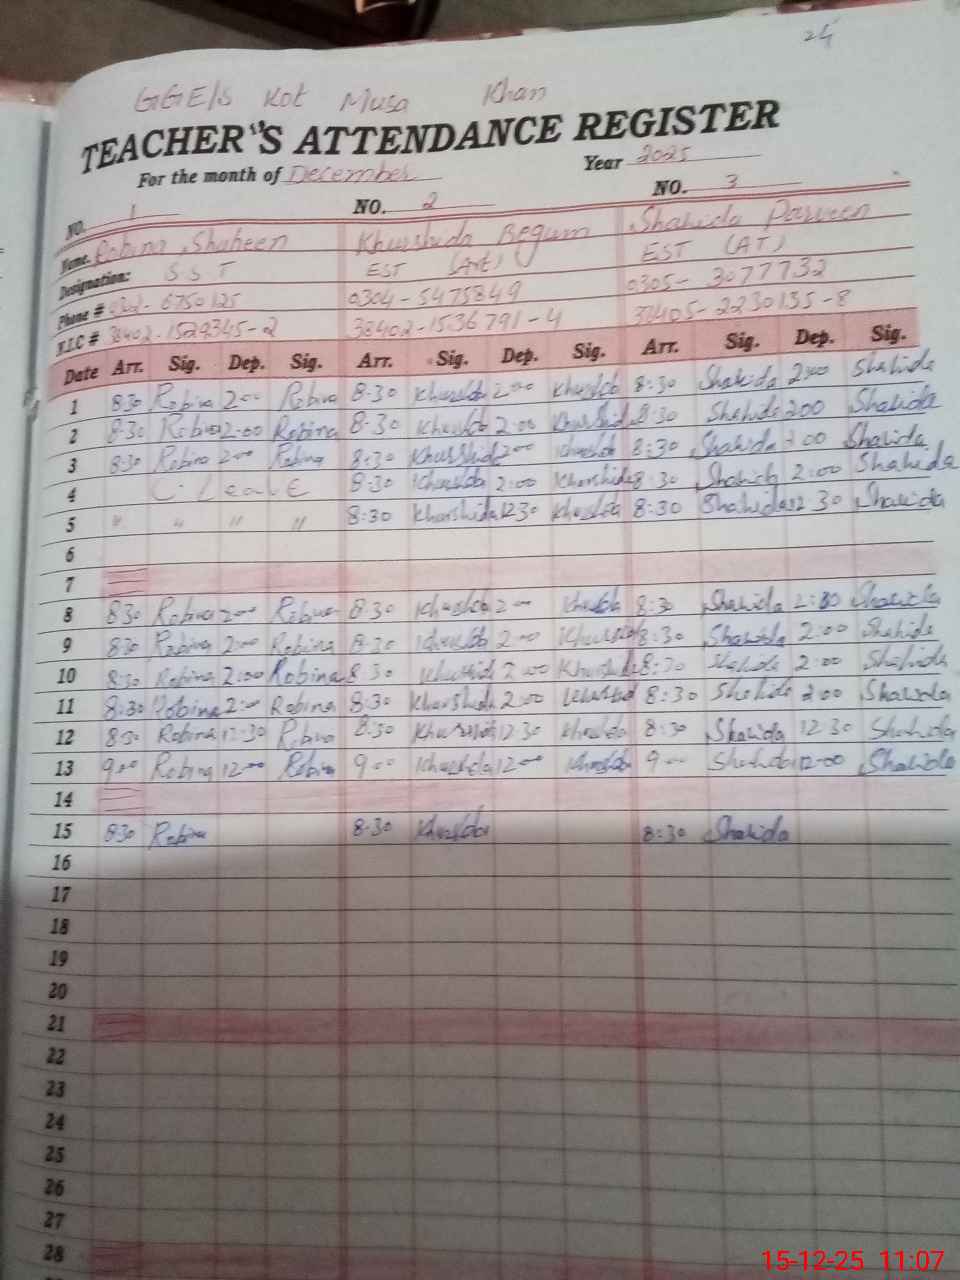 24
GGE/S Kot Musa Khan
TEACHER'S ATTENDANCE REGISTER
For the month of December Year 2025
NO. 1 NO. 2 NO. 3
Name. Robina Shaheen Khurshida Begum Shahida Parveen
Designation: S S T EST (Art) EST (AT)
Phone # 0302-6750125 0304-5475849 0305-3077732
N.I.C # 38402-1529345-2 38402-1536791-4 37405-2230135-8
Date Arr. Sig. Dep. Sig. Arr. Sig. Dep. Sig. Arr. Sig. Dep. Sig.
1 8:30 Robina 2:00 Robina 8:30 Khurshida 2:00 Khurshida 8:30 Shahida 2:00 Shahida
2 8:30 Robina 2:00 Robina 8:30 Khurshida 2:00 Khurshida 8:30 Shahida 2:00 Shahida
3 8:30 Robina 2:00 Robina 8:30 Khurshida 2:00 Khurshida 8:30 Shahida 2:00 Shahida
4 C. Leave 8:30 Khurshida 2:00 Khurshida 8:30 Shahida 2:00 Shahida
5 " " " " 8:30 Khurshida 12:30 Khurshida 8:30 Shahida 12:30 Shahida
6
7
8 8:30 Robina 2:00 Robina 8:30 Khurshida 2:00 Khurshida 8:30 Shahida 2:00 Shahida
9 8:30 Robina 2:00 Robina 8:30 Khurshida 2:00 Khurshida 8:30 Shahida 2:00 Shahida
10 8:30 Robina 2:00 Robina 8:30 Khurshida 2:00 Khurshida 8:30 Shahida 2:00 Shahida
11 8:30 Robina 2:00 Robina 8:30 Khurshida 2:00 Khurshida 8:30 Shahida 2:00 Shahida
12 8:30 Robina 12:30 Robina 8:30 Khurshida 12:30 Khurshida 8:30 Shahida 12:30 Shahida
13 9:00 Robina 12:00 Robina 9:00 Khurshida 12:00 Khurshida 9:00 Shahida 12:00 Shahida
14
15 8:30 Robina 8:30 Khurshida 8:30 Shahida
16
17
18
19
20
21
22
23
24
25
26
27
28
15-12-25 11:07